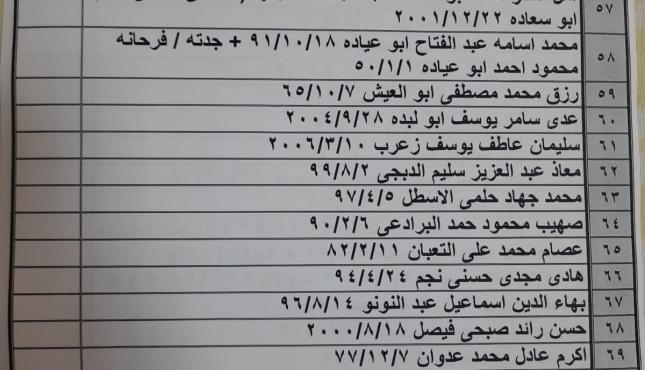 ٥٧
ابو سعاده ٢٠٠١/١٢/٢٢
٥٨ محمد اسامه عبد الفتاح ابو عياده ٩١/١٠/١٨ + جدته / فرحانه
محمود احمد ابو عياده ٥٠/١/١
٥٩ رزق محمد مصطفى ابو العيش ٦٥/١٠/٧
٦٠ عدى سامر يوسف ابو لبده ٢٠٠٤/٩/٢٨
٦١ سليمان عاطف يوسف زعرب ٢٠٠٦/٣/١٠
٦٢ معاذ عبد العزيز سليم الدبجى ٩٩/٨/٢
٦٣ محمد جهاد حلمى الاسطل ٩٧/٤/٥
٦٤ صهيب محمود حمد البرادعى ٩٠/٢/٦
٦٥ عصام محمد على التعبان ٨٢/٢/١١
٦٦ هادى مجدى حسنى نجم ٩٤/٤/٢٤
٦٧ بهاء الدين اسماعيل عبد النونو ٩٦/٨/١٤
٦٨ حسن رائد صبحى فيصل ٢٠٠٠/٨/١٨
٦٩ اكرم عادل محمد عدوان ٧٧/١٢/٧